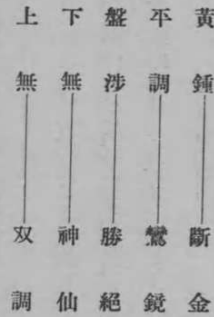 黃鍾——斷金
平調——鸞鏡
盤涉——勝絕
下無——神仙
上無——双調